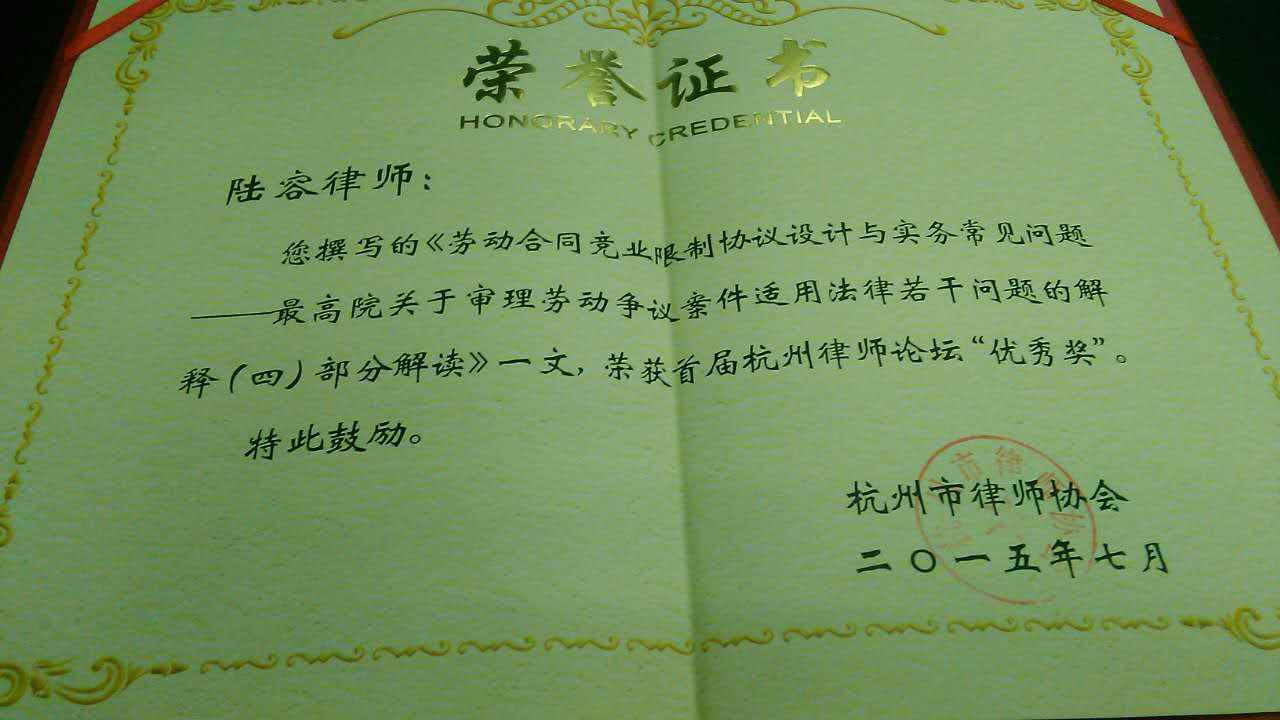 荣誉证书
HONORARY CREDENTIAL
陆容律师：
您撰写的《劳动合同竞业限制协议设计与实务常见问题
——最高院关于审理劳动争议案件适用法律若干问题的解
释(四)部分解读》一文，荣获首届杭州律师论坛“优秀奖”。
特此鼓励。
杭州市律师协会
二〇一五年七月